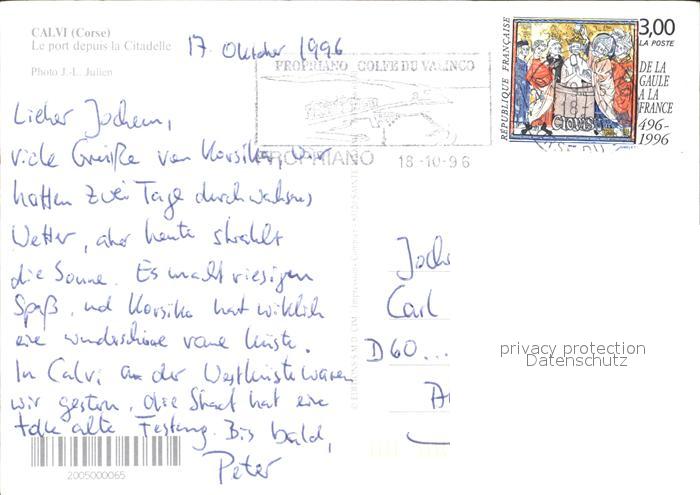 CALVI (Corse)
Le port depuis la Citadelle
Photo J.-L. Julien
17. Oktober 1996
PROPRIANO GOLFE DU VALINCO
PROPRIANO 18-10-96
RÉPUBLIQUE FRANÇAISE
3,00
LA POSTE
DE LA
GAULE
A LA
FRANCE
496-
1996
Clovis
Lieber Jochem,
viele Grüße von Korsika, Wir
hatten zwei Tage durchwachsenes
Wetter, aber heute strahlt
die Sonne. Es macht riesigen
Spaß, und Korsika hat wirklich
eine wunderschöne Küste.
In Calvi an der Westküste waren
wir gestern, die Stadt hat eine
tolle alte Festung. Bis bald,
Peter
2005000065
Joch
Carl
D60...
privacy protection
Datenschutz